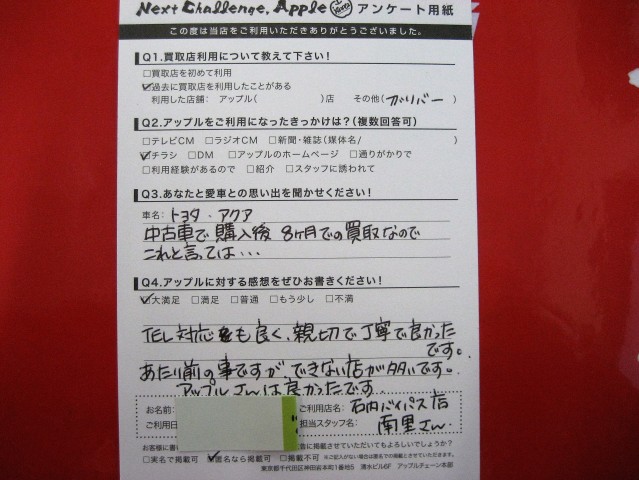 Next Challenge, Apple アンケート用紙
この度は当店をご利用いただきありがとうございました。
Q1.買取店利用について教えて下さい!
□買取店を初めて利用
☑過去に買取店を利用したことがある
利用した店舗: アップル( )店 その他( ガリバー )
Q2.アップルをご利用になったきっかけは?(複数回答可)
□テレビCM □ラジオCM □新聞・雑誌(媒体名/ )
☑チラシ □DM □アップルのホームページ □通りがかりで
□利用経験があるので □紹介 □スタッフに誘われて
Q3.あなたと愛車との思い出を聞かせください!
車名: トヨタ・アクア
中古車で購入後 8ヶ月での買取なので
これと言っては・・・
Q4.アップルに対する感想をぜひお書きください!
☑大満足 □満足 □普通 □もう少し □不満
TEL対応も良く、親切で丁寧で良かった
です。
あたり前の事ですが、できない店が多いです。
アップルさんは良かったです
お名前: ご利用店名: 石内バイパス店
ご利用日 担当スタッフ名: 南里さん
お客様に書 告に掲載させていただいてもよろしいでしょうか?
□実名で掲載可 ☑匿名なら掲載可 □掲載不可 ※ご記入がない場合は匿名での掲載とさせていただきます。
東京都千代田区神田岩本町1番地5 清水ビル6F アップルチェーン本部